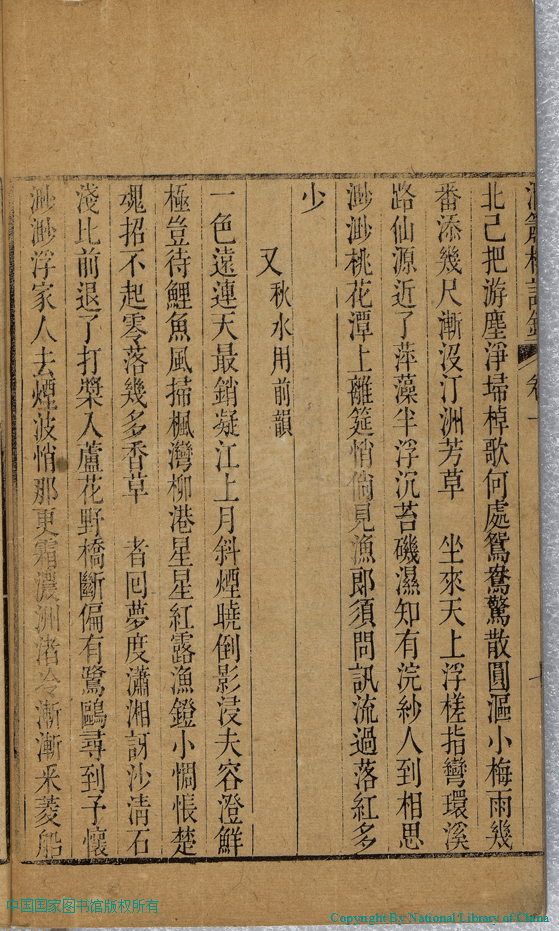 北己把游塵淨埽棹歌何處鴛鴦驚散圓漚小梅雨幾
番添幾尺漸沒汀洲芳草　坐來天上浮槎指彎環溪
路仙源近了萍藻半浮沉苔磯濕知有浣紗人到相思
渺渺桃花潭上離筵悄倘見漁郎須問訊流過落紅多
少
又秋水用前韻
一色遠連天最銷凝江上月斜煙曉倒影浸夫容澄鮮
極豈待鯉魚風掃楓灣柳港星星紅露漁鐙小惆悵楚
魂招不起零落幾多香草　者回夢度瀟湘訝沙清石
淺比前退了打槳入蘆花野橋斷偏有鷺鷗尋到予懷
渺渺浮家人去煙波悄那更霜濃洲渚冷漸漸采菱船
中国国家图书馆版权所有
Copyright By National Library of China